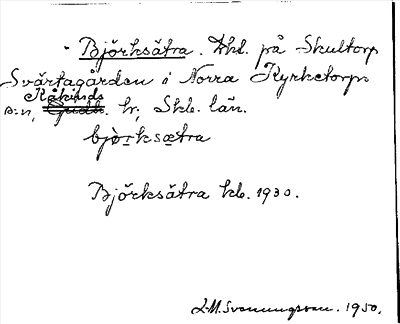 Björksätra. Lht. på Skultorp
Svärtagården i Norra Kyrketorps
Kåkinds
s:n, Gudh. hr, Skb. län.
bjòrksætra
Björksätra kb. 1930.
L-M. Svenungsson. 1950.